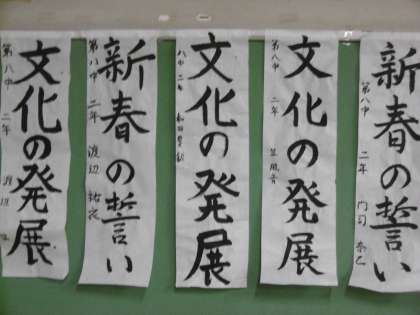 新春の誓い
第八中 二年 門司
文化の発展
第八中 二年
文化の発展
八中 二年
新春の誓い
第八中 二年 渡辺
文化の発展
第八中 二年 渡辺